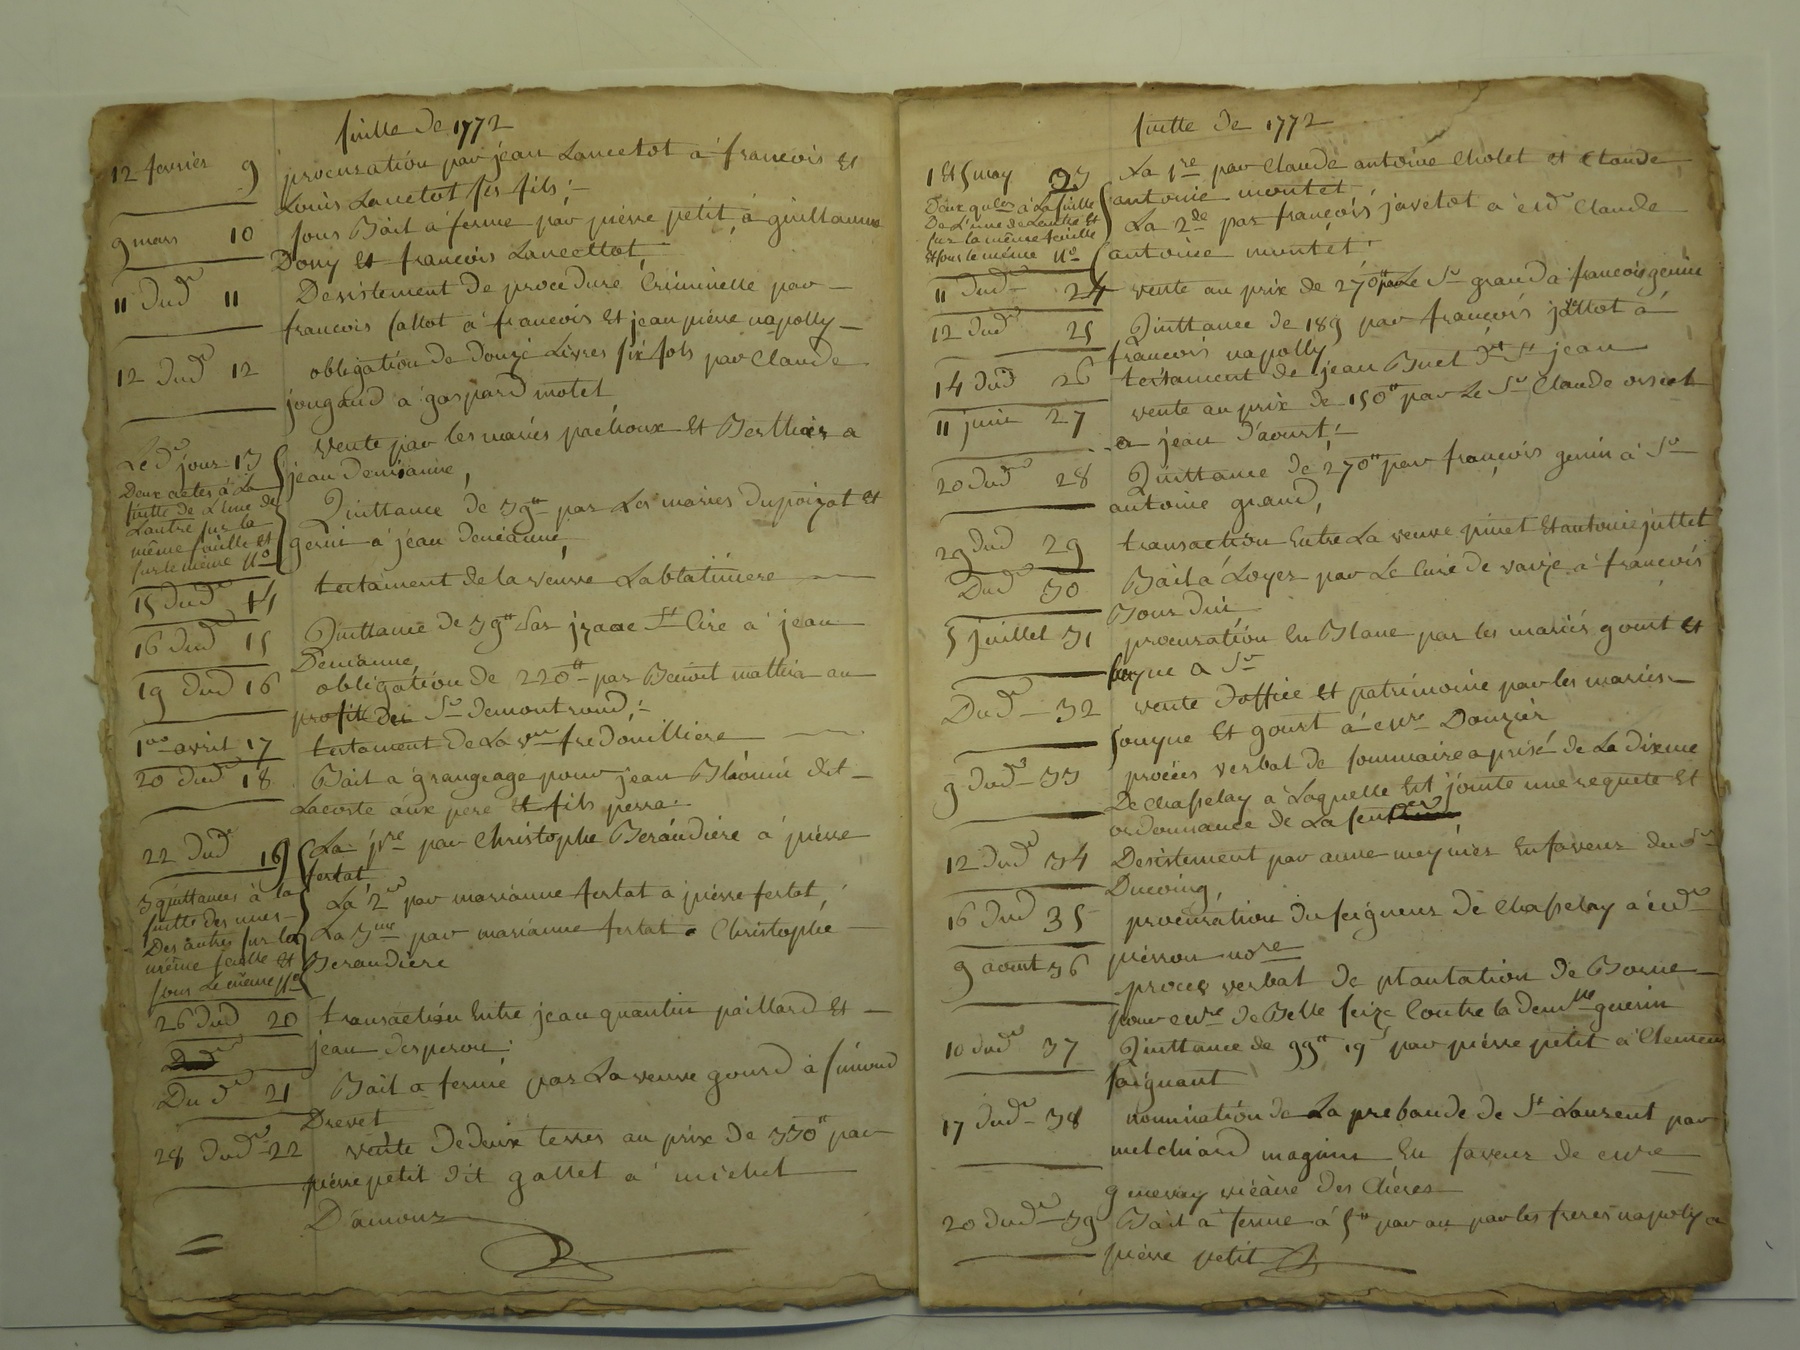 suitte de 1772
12 fevrier 9 procuration par jean Lancetot a francois et
Louis Lancetot ses fils :-
9 mars 10 sous Bail a ferme par pierre petit, a guillaume
Dony et francois Lancettot,
11 dud 11 Desistement de procedure Criminelle par -
francois fallot a francois et jean pierre napolly -
12 dud 12 obligation de douze Livres six sols par Claude
jougand a gaspard motet
Le d. jour 13 Vente par les mariés pachoux et Berthier a
jean demianne,
Deux actes à La
suitte de L'une de
Lautre sur la
même feuille et
sur le même N.o
Quittance de 39tt par Les mariés dupoizat et
genin a jean demeanne
15 dud 14 testament de la veuve Lablatiniere
16 dud 15 Quittance de 39tt par jzaac St Cire a jean
Demianne,
19 dud 16 obligation de 220tt par Benoit mattira au
profit dei Sr demontrond, :-
1er avril 17 testament de La vve fredouilliere
20 dud 18 Bail a grangeage pour jean Bhomé dit -
Lacoste aux pere et fils perra
22 dud 19 La pre par Christophe Beraudiere a pierre
fertat
3 quittances à la
suitte des unes
Des autres sur la
même feuille et
sous Le même No
La 2e par marianne fertat a pierre fertat,
La 3me par marianne fertat a Christophe
Beraudiere
26 dud 20 transaction Entre jean quantin paillard et -
jean desperou :
Du d 21 Bail a ferme par La veuve gourd à simond
Drevet
28 dud 22 vente de deux terres au prix de 330tt par
pierre petit dit gallet a michel
D'amour
suitte de 1772
1 et 5 may 23 La 1re par Claude antoine Cholet et Claude
antoine montet
Deux qules à La suitte
De L'une de Lautre et
sur la même feuille
et sous le même No
La 2de par francois javetot a eud. Claude
antoine montet
11 dud 24 vente au prix de 270tt par Le Sr grand a francois genin
12 dud 25 Quittance de 189 par francois jattot à
francois napolly
14 dud 26 testament de jean Buet dit St jean
11 juin 27 vente au prix de 150tt par Le Sr Claude orset
a jean d'aoust, :-
20 dud 28 Quittance de 270tt par francois genin a Sr
antoine grand,
29 dud 29 transaction Entre La veuve pinet et antoine juttet
Dud 30 Bail a Loyer par Le Curé de vaize a francois
Bourdui
5 juillet 31 procuration En Blanc par les mariés gourt et
fayne a Sr
Dud 32 vente d'office et patrimoine par les mariés
souyne et gourt à eure Douzier
9 dud 33 procès verbal de sommaire a prise de La dixme
De Chasselay a Laquelle est jointe une requete et
ordonnance de La
12 dud 34 Desistement par anne meynier En faveur du Sr
Ducoing,
16 dud 35 procuration du seigneur de Chasselay a eud
pierron nore
9 aoust 36 procez verbal de plantation de Borne
pour eure de Belle seize Contre la demlle guerin
10 dud 37 Quittance de 99tt 19s par pierre petit a Clement
saignant
17 dud 38 nomination de La prebande de St Laurent par
melchiard magnin En faveur de eure
genevay vicaire des Cheres
20 dud 39 Bail a ferme à 5tt par an par les freres napoly a
pierre petit